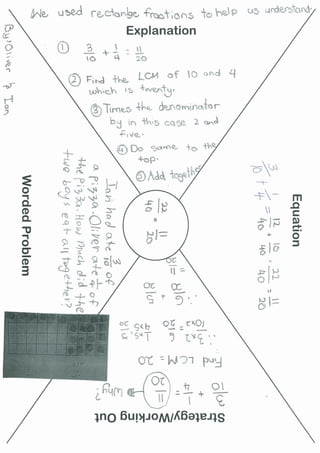 We used rectangle fractions to help us understand
By: Oliver & Ian
Explanation
① 3/10 + 1/4 = 11/20
② Find the LCM of 10 and 4
which is twenty.
③ Times the denominator
by in this case 2 and
five.
④ Do same to the
top.
⑤ Add together
22/40 = 11/20
Equation
3/10 + 1/4 = 12/40 + 10/40 = 22/40 = 11/20
Strategy/Working Out
3/10 + 1/4 = 11/20 ← Why?
Find LCM = 20
∴ 3x2/10x2 = 6/20 1x5/4x5 = 5/20
∴ 6/20 + 5/20
= 11/20
Worded Problem
Ian had ate 3/10 of
a pizza. Oliver ate 1/4 of
the pizza. How much did the
two boys eat all together?